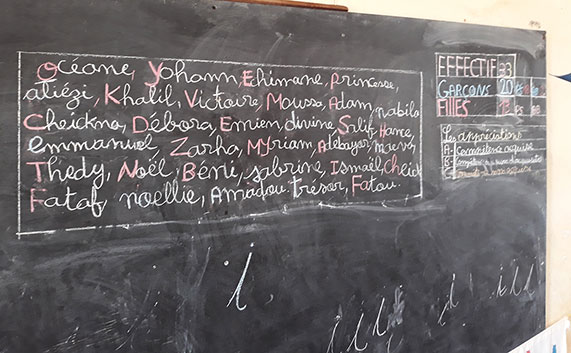 Océane, Yohann, Ehimane, Princesse,
aliézi, Khalil, Victoire, Moussa, Adam, nabila
Cheickna, Débora, Emien, divine, Salif,
emmanuel Zarha, Myriam,
Thedy, Noël, Béni, sabrine, Ismaël, Cheick
Fataf, noellie, Amadou trésor, Fatou.
EFFECTIF 33
GARÇONS 20
FILLES 13
Les appréciations
A: Compétence acquise
i